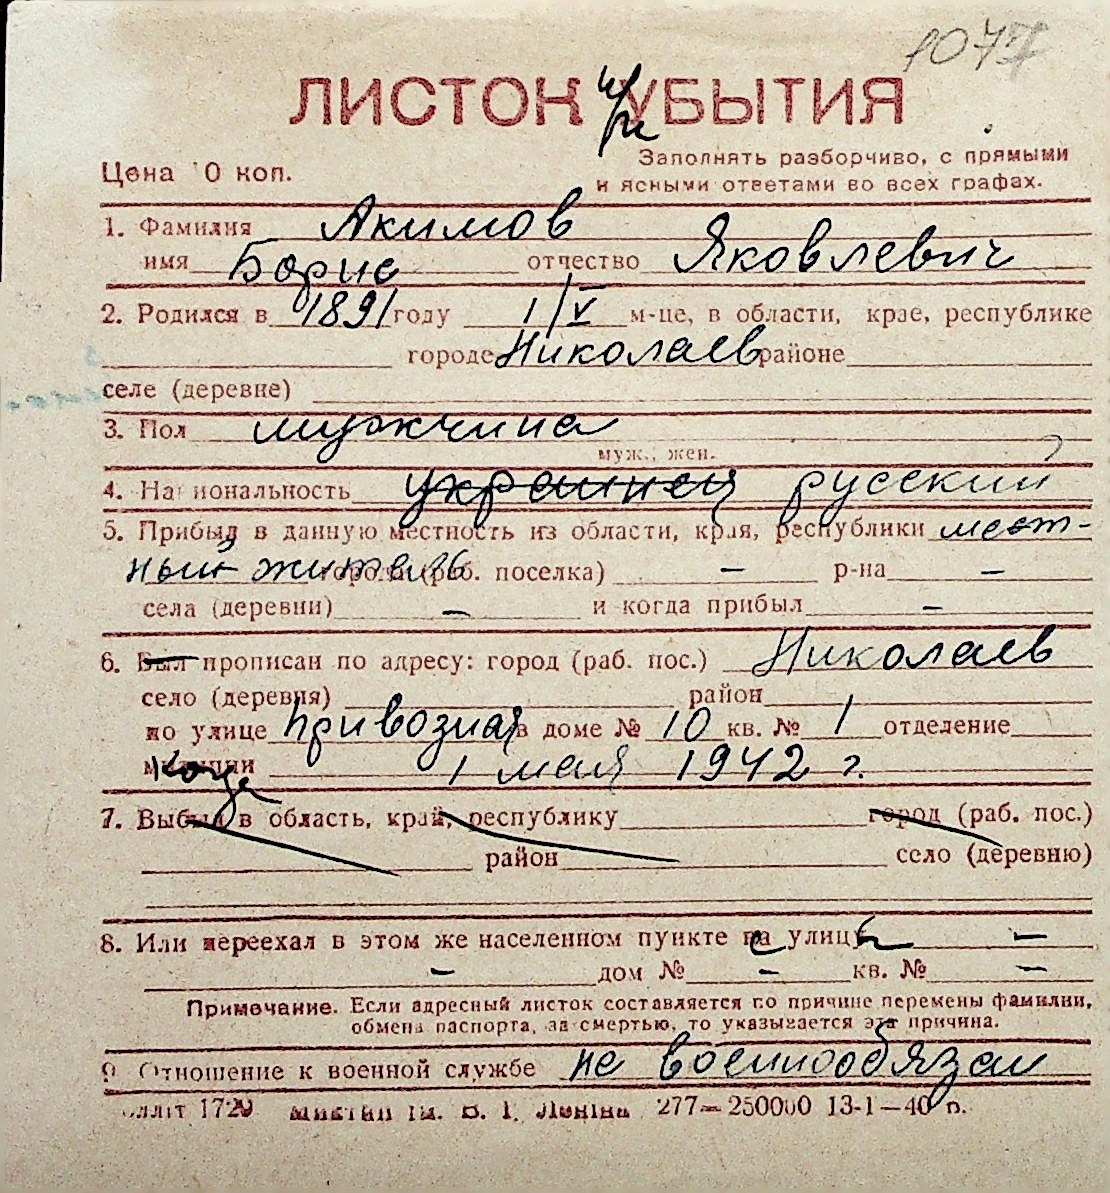 1077
ЛИСТОК при УБЫТИЯ
Цена 10 коп. Заполнять разборчиво, с прямыми
и ясными ответами во всех графах.
1. Фамилия Акимов
имя Борис отчество Яковлевич
2. Родился в 1891 году 1/V м-це, в области, крае, республике
городе Николаев районе
селе (деревне)
3. Пол мужчина
муж., жен.
4. Национальность украинец русский
5. Прибыл в данную местность из области, края, республики мест-
ный житель города (раб. поселка) — р-на —
села (деревни) — и когда прибыл —
6. Был прописан по адресу: город (раб. пос.) Николаев
село (деревня) район
по улице Привозная в доме № 10 кв. № 1 отделение
милиции Когда 1 мая 1942 г.
7. Выбыл в область, край, республику город (раб. пос.)
район село (деревню)
8. Или переехал в этом же населенном пункте с улицы —
— дом № — кв. № —
Примечание. Если адресный листок составляется по причине перемены фамилии,
обмена паспорта, за смертью, то указывается эта причина.
9. Отношение к военной службе не военнообязан
1729 ім. В. І. Леніна 277—250000 13-1—40 р.